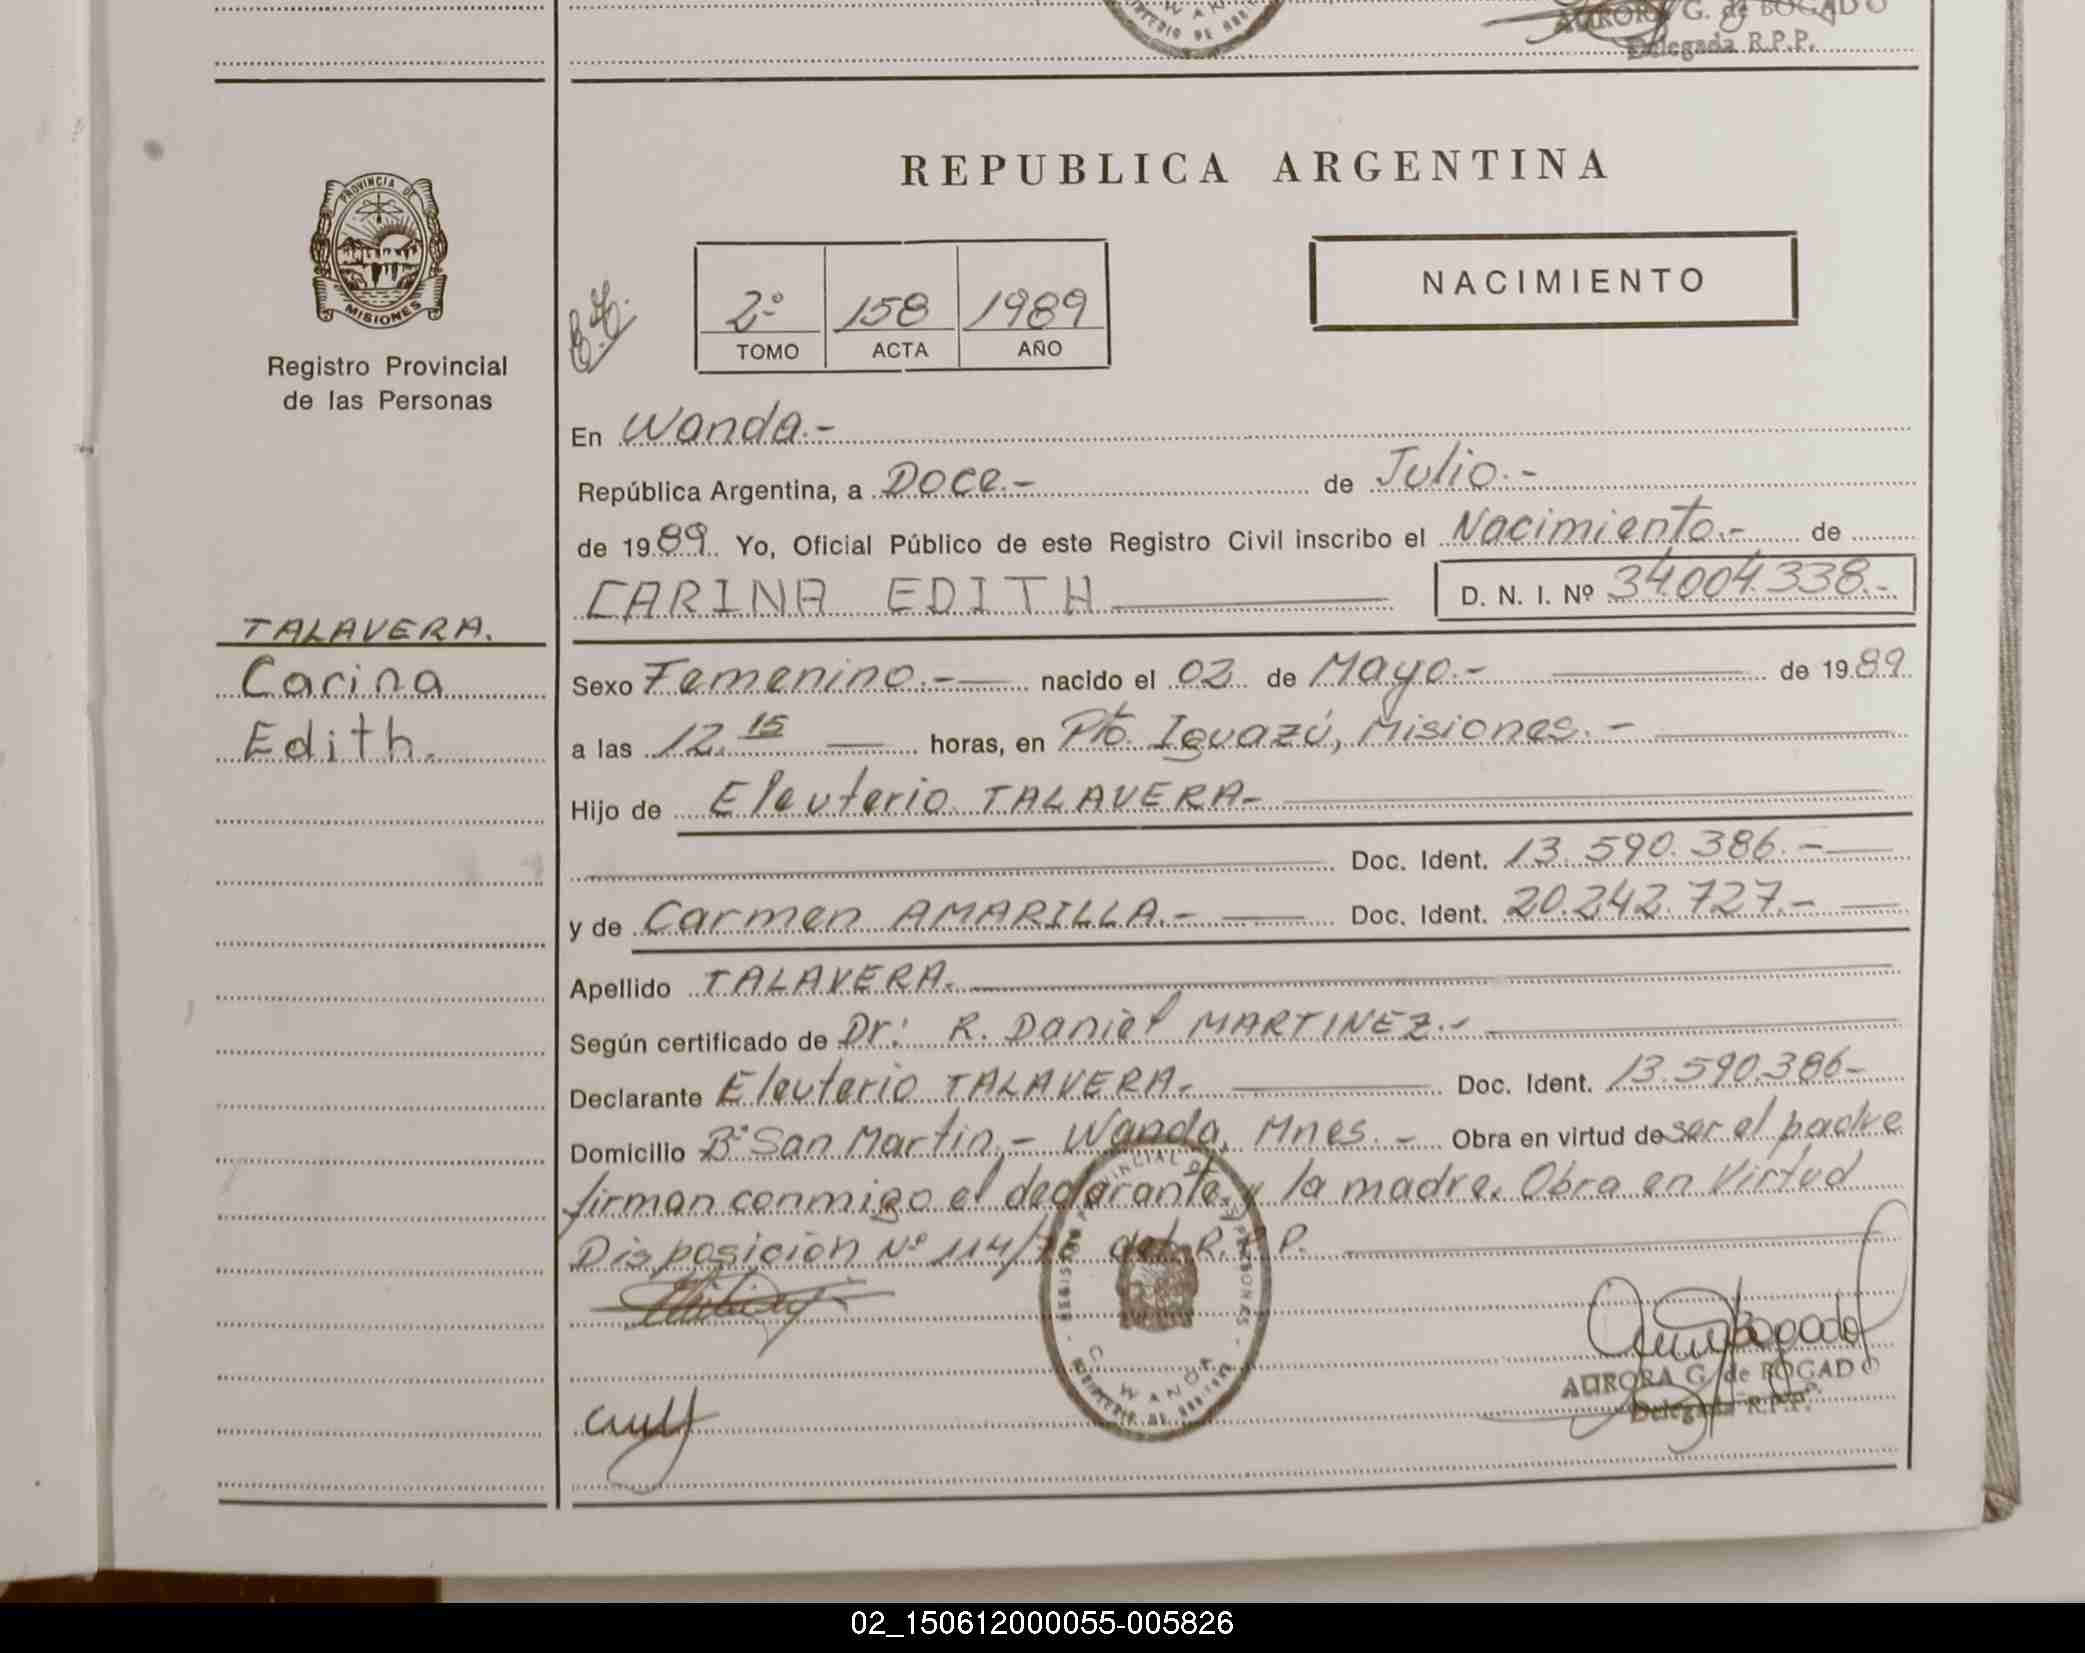 AURORA G. de BOGADO
Delegada R.P.P.
REPUBLICA ARGENTINA
PROVINCIA DE
MISIONES
Registro Provincial
de las Personas
2º 158 1989
TOMO ACTA AÑO
NACIMIENTO
En Wanda.-
República Argentina, a Doce.- de Julio.-
de 1989. Yo, Oficial Público de este Registro Civil inscribo el Nacimiento.- de
CARINA EDITH D. N. I. Nº 34.004.338.-
TALAVERA.
Carina
Edith.
Sexo Femenino.- nacido el 02 de Mayo.- de 1989
a las 12.15 horas, en Pto. Iguazú, Misiones.-
Hijo de Eleuterio TALAVERA-
Doc. Ident. 13.590.386.-
y de Carmen AMARILLA.- Doc. Ident. 20.242.727.-
Apellido TALAVERA.
Según certificado de Dr: R. Daniel MARTINEZ.-
Declarante Eleuterio TALAVERA. Doc. Ident. 13.590.386-
Domicilio Bº San Martin.- Wanda, Mnes.- Obra en virtud de ser el padre
firman conmigo el declarante y la madre. Obra en Virtud
Disposición Nº 114/ del R.P.P.
WANDA
AURORA G. de BOGADO
Delegada R.P.P.
02_150612000055-005826